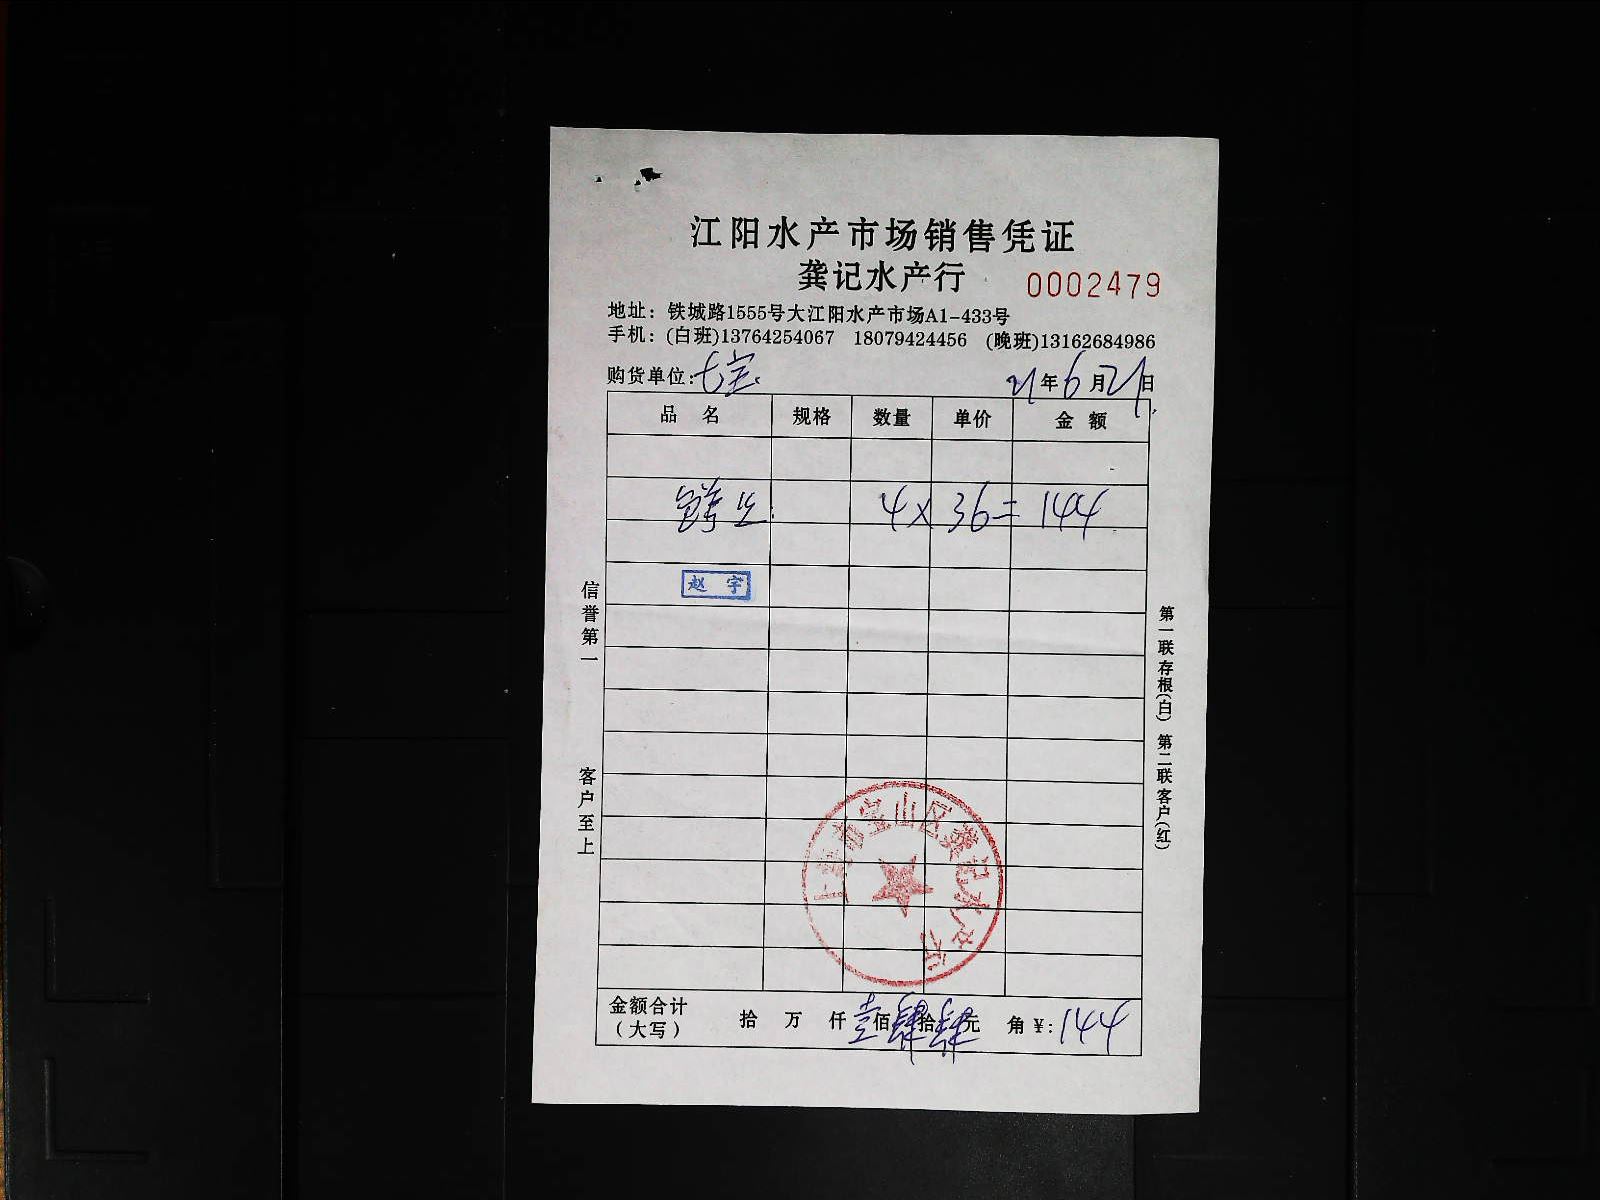 江阳水产市场销售凭证
龚记水产行 0002479
地址：铁城路1555号大江阳水产市场A1-433号
手机：(白班)13764254067 18079424456 (晚班)13162684986
购货单位：七宝 21年6月21日
品名 规格 数量 单价 金额
4×36=144
赵宇
信誉第一
客户至上
第一联存根(白) 第二联客户(红)
上海市宝山区龚记水产行
金额合计
（大写） 拾 万 仟 壹佰肆拾肆元 角 ¥：144